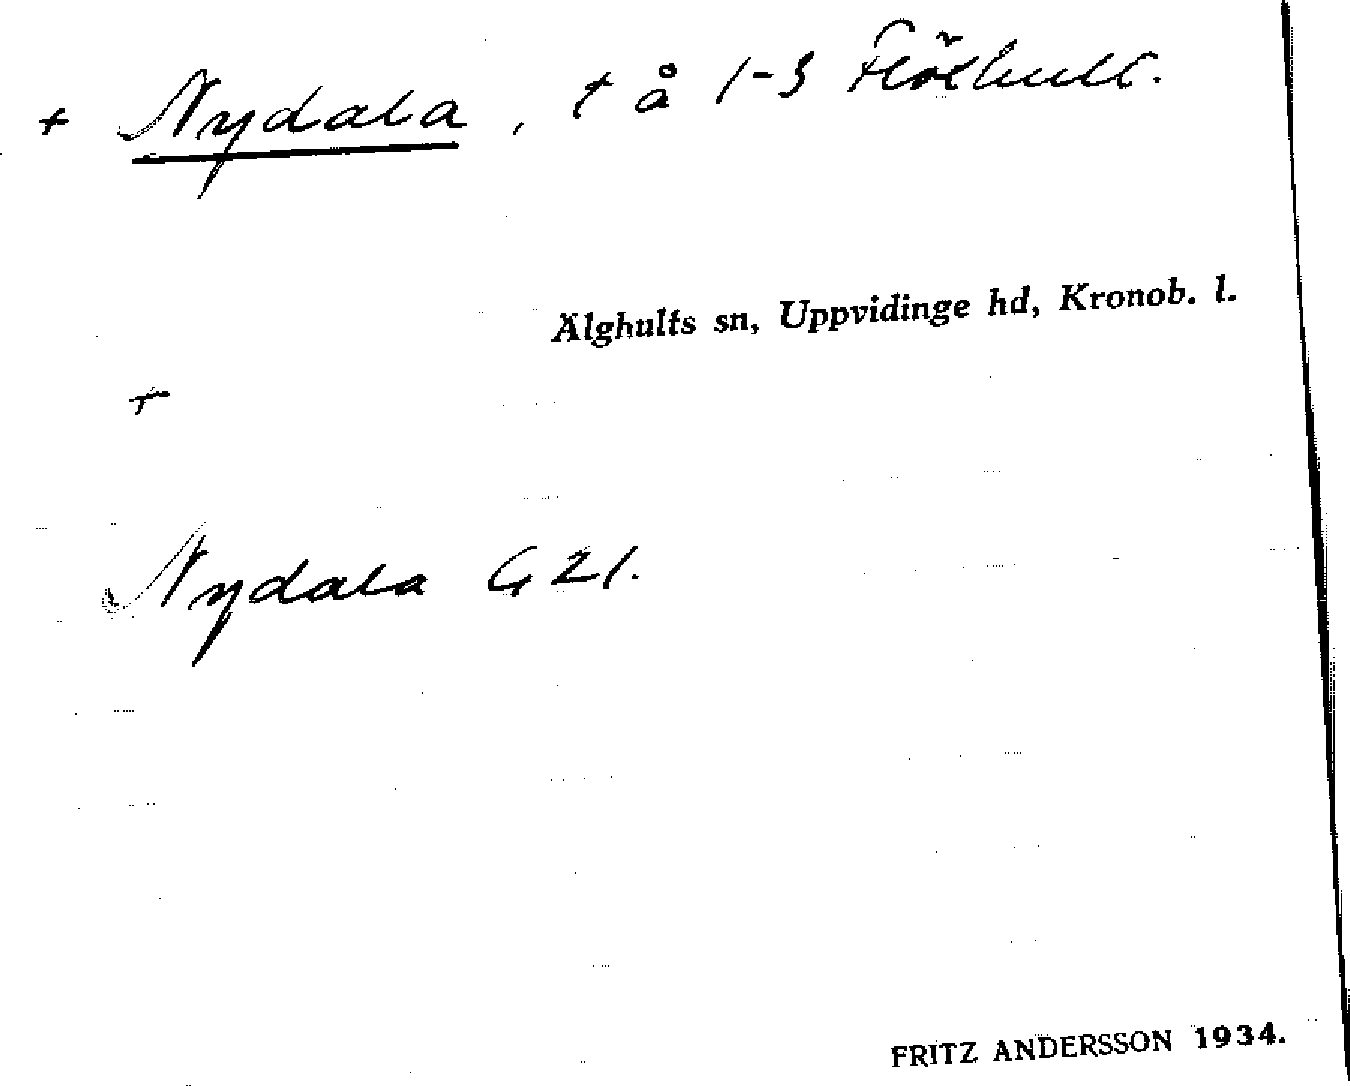 + Nydala, t å 1-3 Flöxhult.
Älghults sn, Uppvidinge hd, Kronob. l.
+
Nydala G 21.
FRITZ ANDERSSON 1934.